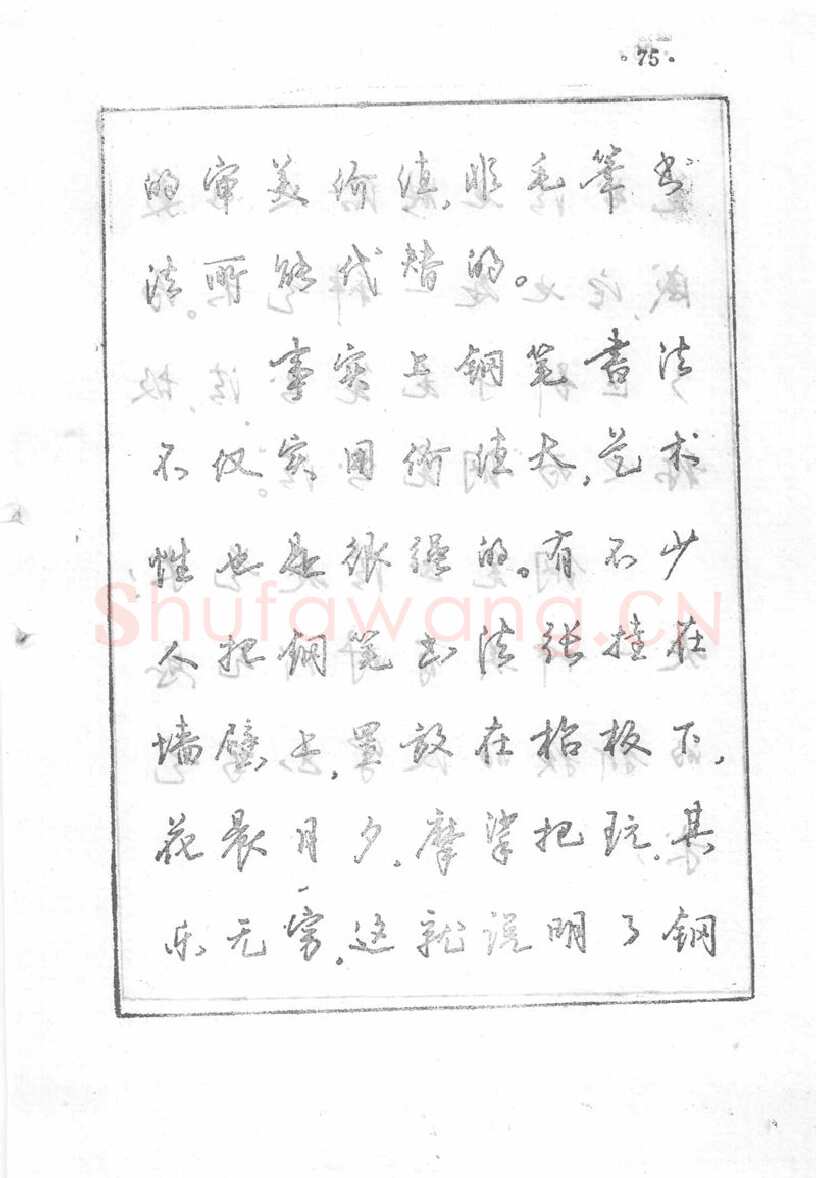 ·75·
的审美价值,非毛筆书
法所能代替的。
事实上钢笔書法
不仅实用价值大,艺术
性也是很强的。有不少
人把钢笔书法张挂在
墙壁上,置放在枱板下,
花晨月夕,摩挲把玩,其
乐无穷,这就说明了钢
Shufawang.CN